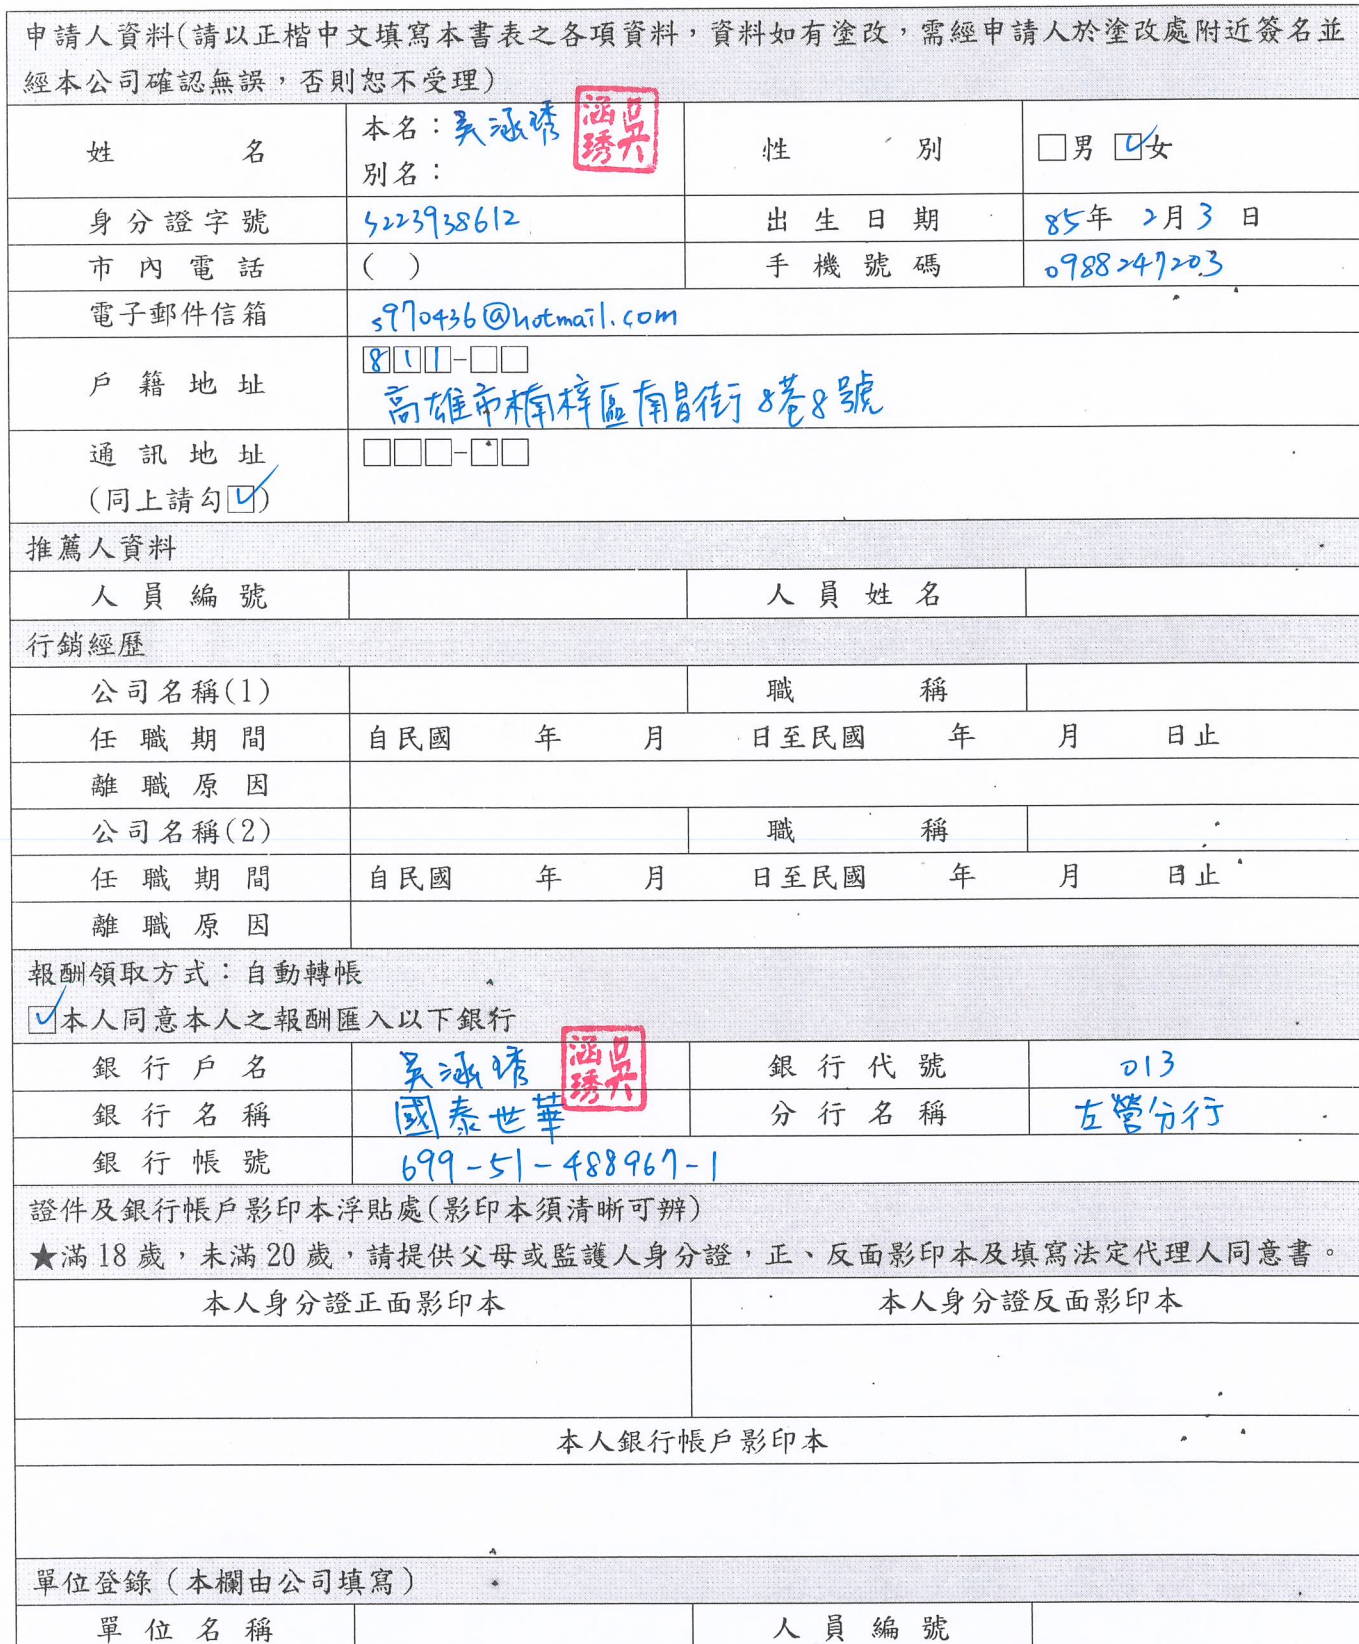 申請人資料(請以正楷中文填寫本書表之各項資料，資料如有塗改，需經申請人於塗改處附近簽名並
經本公司確認無誤，否則恕不受理)
姓名 本名：吳涵琇 吳涵琇 性別 □男 ☑女
別名：
身分證字號 S223938612 出生日期 85年 2月 3日
市內電話 ( ) 手機號碼 0988247203
電子郵件信箱 s970436@hotmail.com
戶籍地址 811-□□
高雄市楠梓區南昌街8巷8號
通訊地址 □□□-□□
(同上請勾☑)
推薦人資料
人員編號 人員姓名
行銷經歷
公司名稱(1) 職稱
任職期間 自民國 年 月 日至民國 年 月 日止
離職原因
公司名稱(2) 職稱
任職期間 自民國 年 月 日至民國 年 月 日止
離職原因
報酬領取方式：自動轉帳
☑本人同意本人之報酬匯入以下銀行
銀行戶名 吳涵琇 吳涵琇 銀行代號 013
銀行名稱 國泰世華 分行名稱 左營分行
銀行帳號 699-51-488967-1
證件及銀行帳戶影印本浮貼處(影印本須清晰可辨)
★滿18歲，未滿20歲，請提供父母或監護人身分證，正、反面影印本及填寫法定代理人同意書。
本人身分證正面影印本 本人身分證反面影印本
本人銀行帳戶影印本
單位登錄（本欄由公司填寫）
單位名稱 人員編號